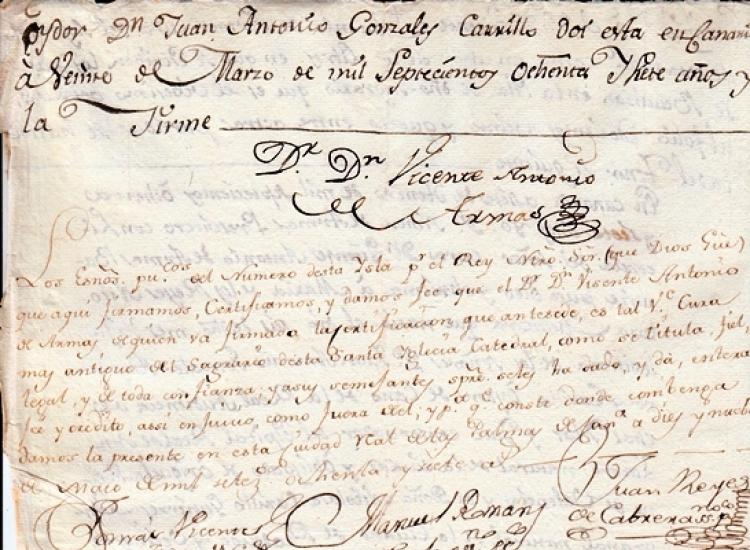 Dn Juan Antonio Gonzales Carrillo dos esta en Canaria
à Veinte de Marzo de mil Septecientos Ochenta Ihete años y
la Firme
Dr. Dn. Vicente Antonio
de Armas
Los Esnos. pu.cos del Numero desta Ysla pr. el Rey Ntro. Sor. (que Dios Gue)
que aqui firmamos, Certificamos, y damos fee que el Dr. Dn Visente Antonio
de Armas de quien va firmada la sertificacion que antesede, es tal Ve. Cura
mas antiguo del Sagrario desta Santa Yglecia Catedral, como se titula, fiel,
legal, y de toda confianza: y a sus semejantes spre. seles ha dado, y dà, entera
fee y credito assi en Juicio, como fuera del; y pa. q. conste donde combenga
damos la presente en esta Ciudad Real de las Palmas de Cana. a dies y nuebe
de Maio de mil setes. ochenta y siete as.
Juan Reyes
Tomas Vicente Manuel Roman de Cabrera